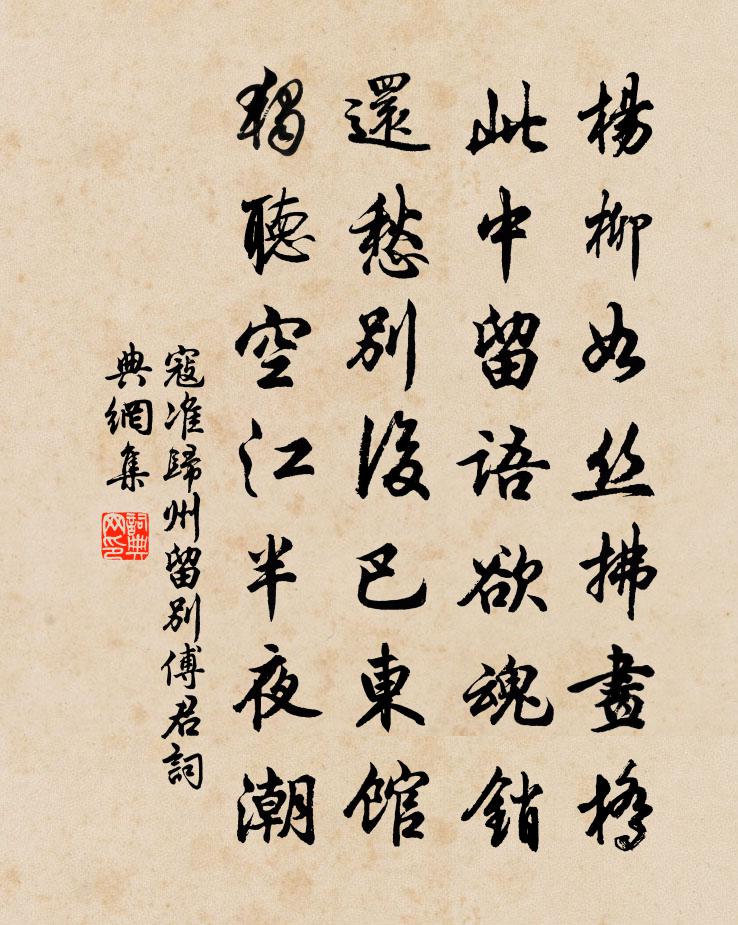 楊柳如絲拂畫橋
此中留語欲魂銷
還愁別後巴東館
獨聽空江半夜潮
寇准歸州留別傅君詞
典網集
詞典網印